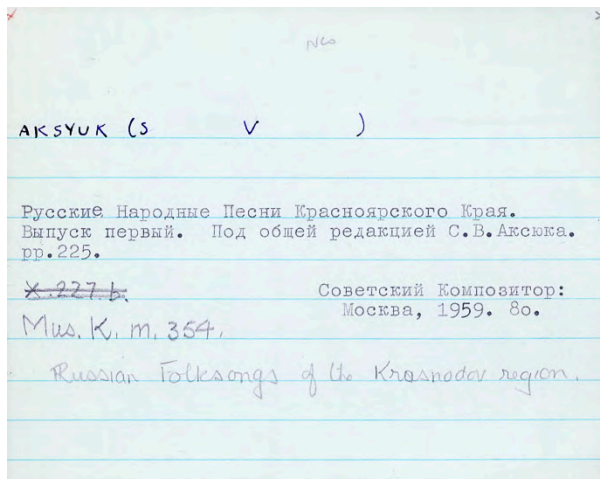 NLO
AKSYUK (S V )
Русские Народные Песни Красноярского Края.
Выпуск первый. Под общей редакцией С.В.Аксюка.
pp.225.
X.227.b.
Советский Композитор:
Mus. K. m. 354.
Москва, 1959. 8o.
Russian Folksongs of the Krasnodov region.